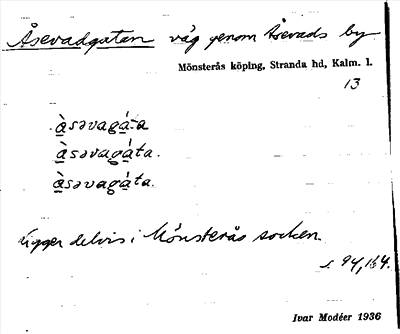 Åsevadgatan väg genom Åsevads by
Mönsterås köping, Stranda hd, Kalm. l.
13
à̲səvagá̲ta
à̲səvagá̲ta.
à̲səvagá̲ta.
Ligger delvis i Mönsterås socken.
s. 94, 164.
Ivar Modéer 1936